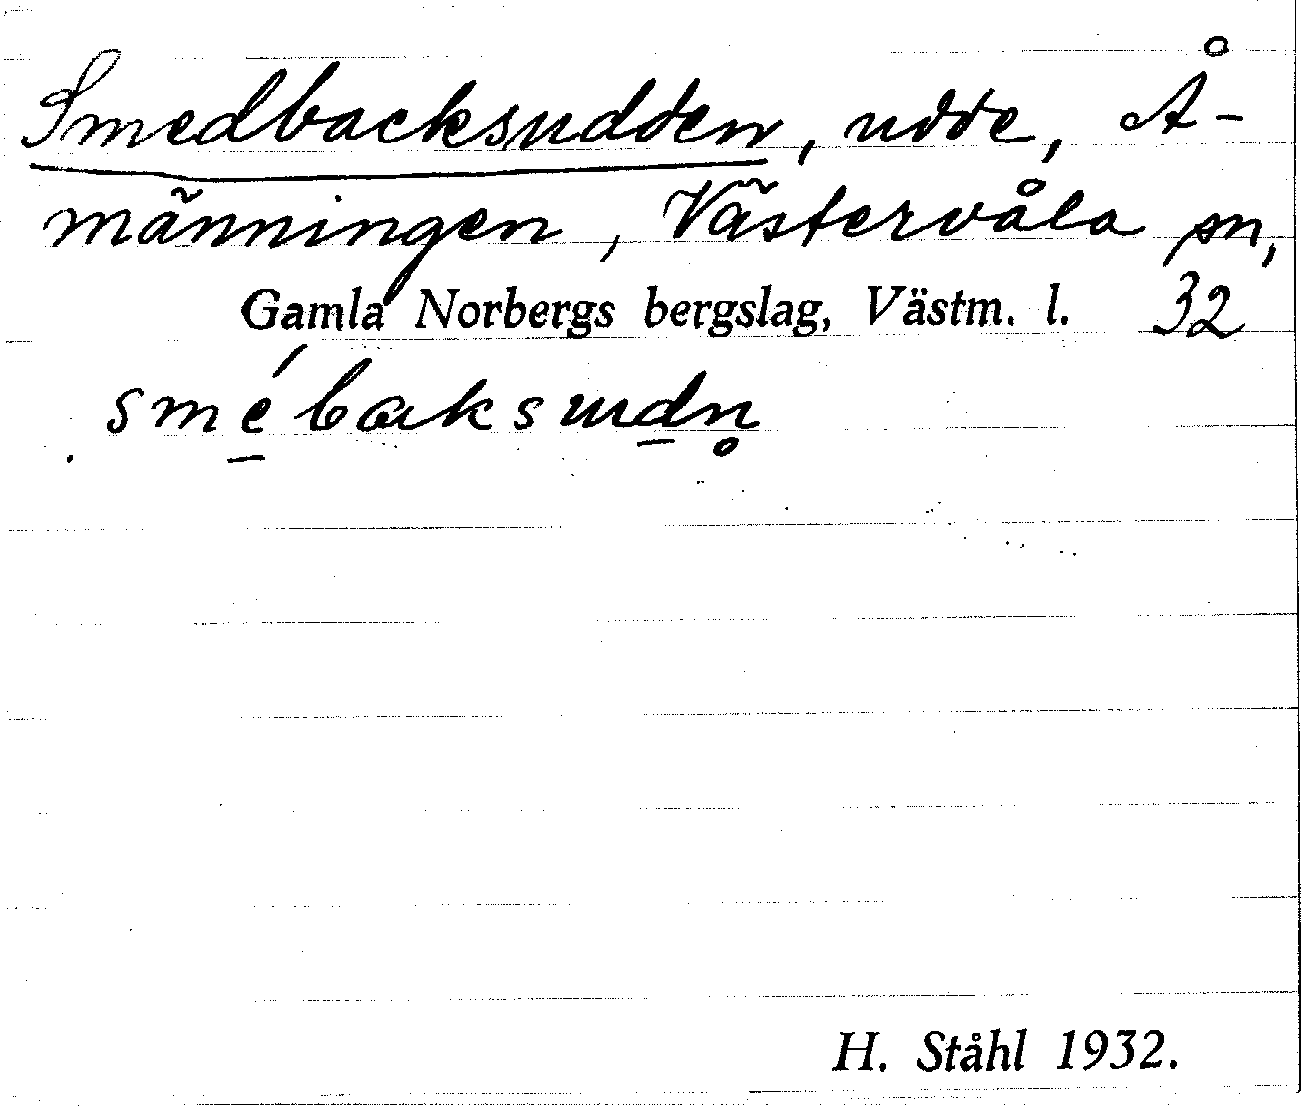 Smedbacksudden, udde, Å-
männingen, Västervåla sn,
Gamla Norbergs bergslag, Västm. l. 32
smé̱baksɯḏn̥
H. Ståhl 1932.